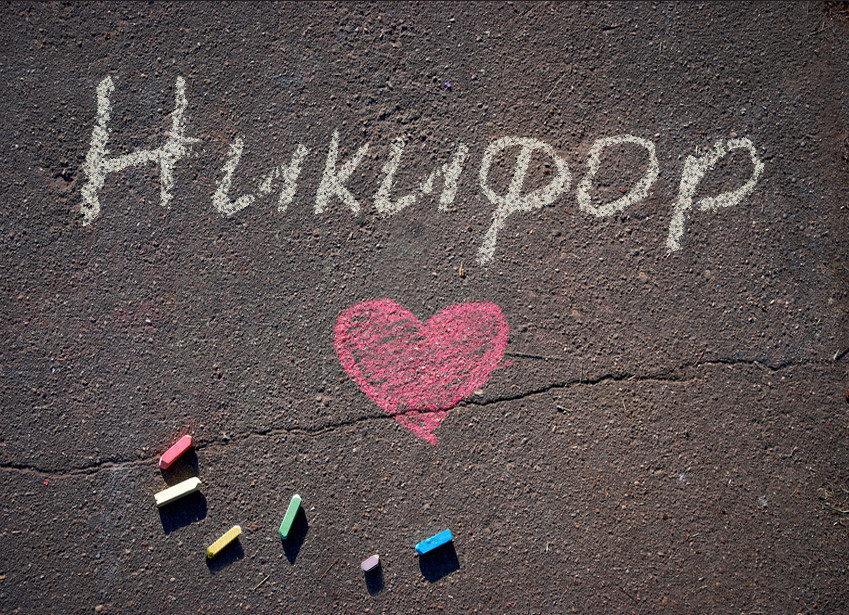 Никифор